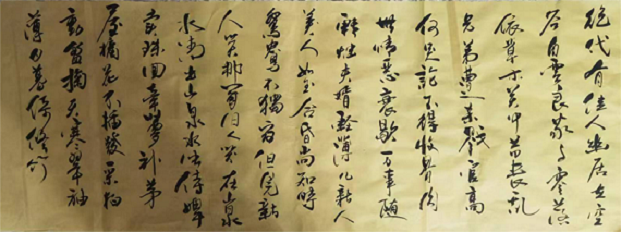 絕代有佳人幽居在空
谷自雲良家子零落
依草木关中昔丧乱
兄弟遭杀戮官高
何足論不得收骨肉
世情恶衰歇万事随
轉烛夫婿輕薄儿新人
美如玉合昏尚知時
鴛鴦不獨宿但見新
人笑那聞旧人哭在山泉
水清出山泉水浊侍婢
賣珠回牽蘿补茅
屋摘花不插髮采柏
動盈掬天寒翠袖
薄日暮倚修竹